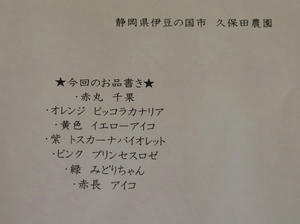 静岡県伊豆の国市 久保田農園
★今回のお品書き★
・赤丸 千果
・オレンジ ピッコラカナリア
・黄色 イエローアイコ
・紫 トスカーナバイオレット
・ピンク プリンセスロゼ
・緑 みどりちゃん
・赤長 アイコ